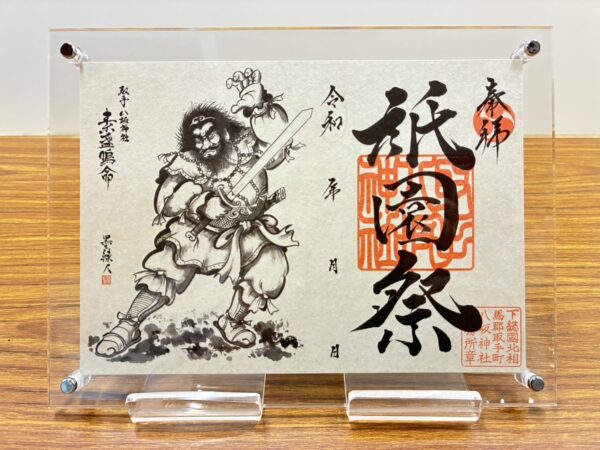 奉拝
祇園祭
下総國北相
馬郡取手町
八坂神社
務所章
令和 年 月 日
取手八坂神社
素盞嗚命